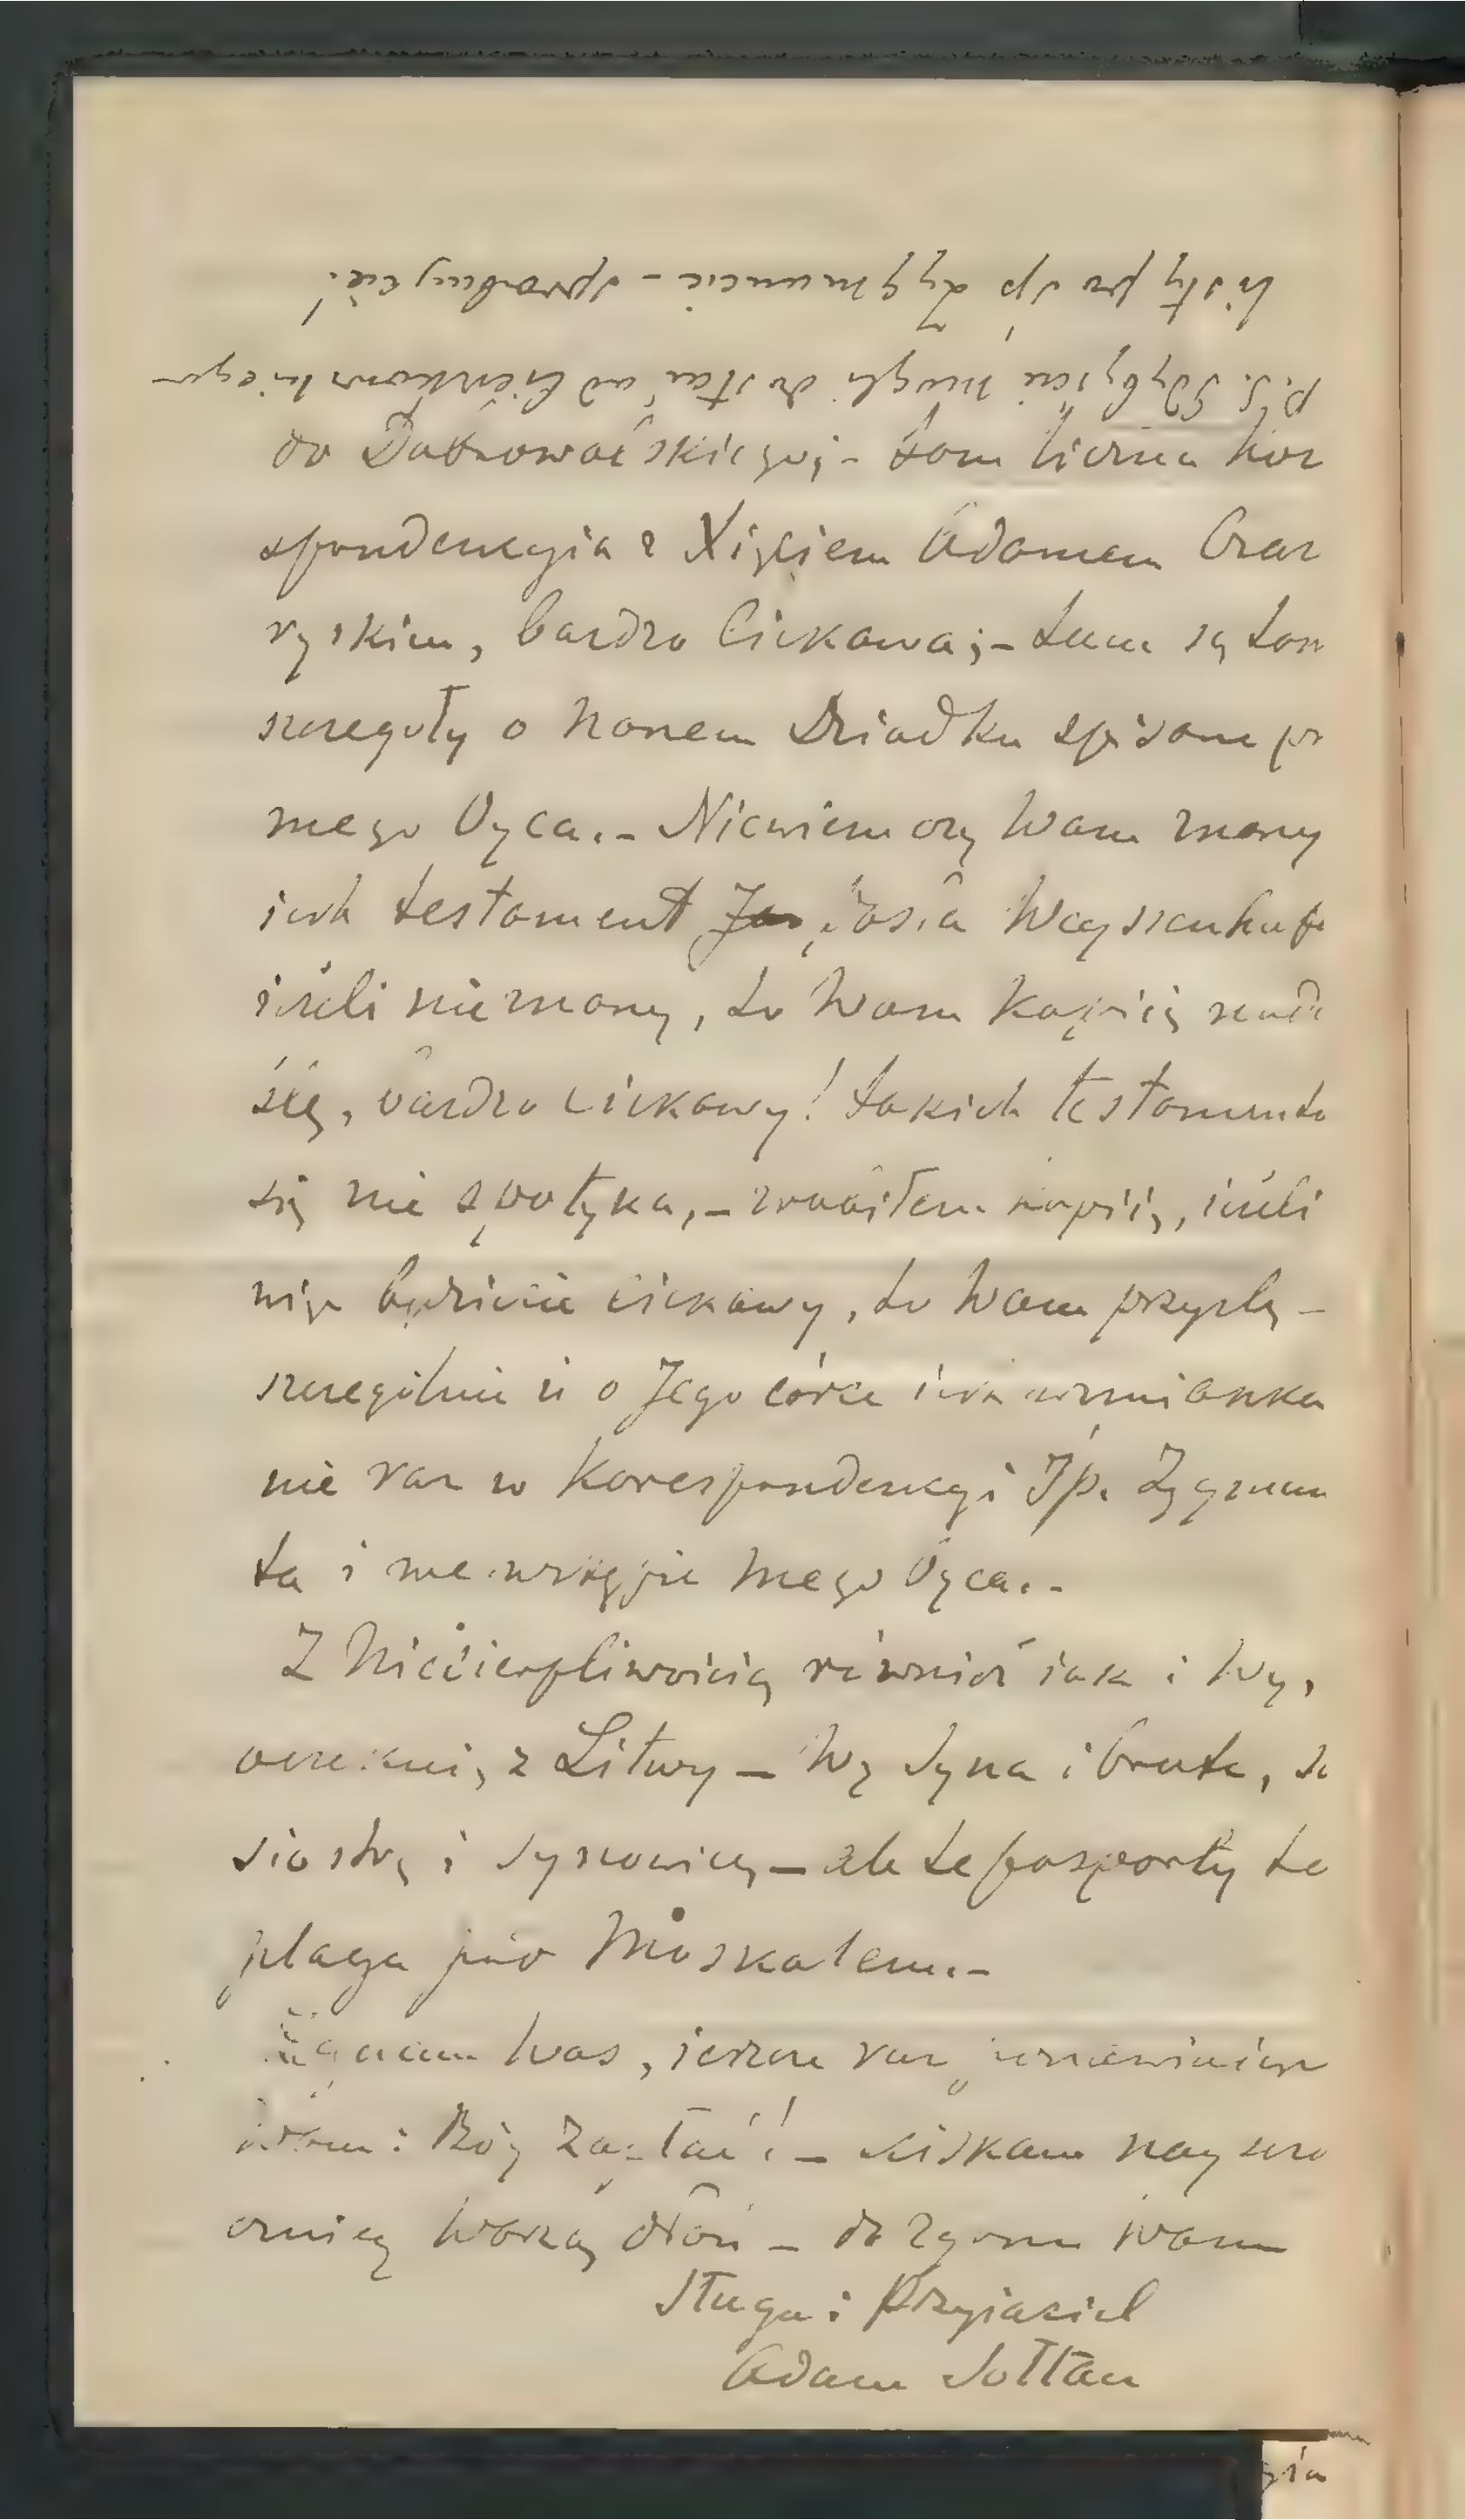 do Dąbrowańskiego;- tam liczna kor
spondencyia z Xięciem Adamem Czar
ryskim, bardzo ciekawa;- tam są tom
szczegóły o Panem Dziadku spisane pr
mego Oyca.- Niewiem czy Wam znany
iest testament Józefa Weyssenhofa
ieżeli nieznany, to Wam kopię
się, bardzo ciekawy! takich testamentó
się nie spotyka,- zrobiłem kopię, ieżeli
więc będziecie ciekawy, to Wam przyślę -
szczególnie iż o Jego córce iest wzmianka
nie raz w Korespondencyi Śp. Zygmun
ta i we mego Oyca.-
Z Niecierpliwością również iak i Wy,
oczekuię z Litwy - Wy Syna i brata, Ja
siostrę i synowicę - ale te pasporty to
plaga pod Moskalem.-
Żegnam Was, ieszcze raz
Wam: Bóg Zapłać! - ściskam nayser
deczniey Waszą dłoń - do zgonu Wam
Sługa i Przyiaciel
Adam Sołtan
P.S. Gdybyście mogli dostać od Cieszkowskiego -
listy po śp Zygmuncie - spróbuycie!